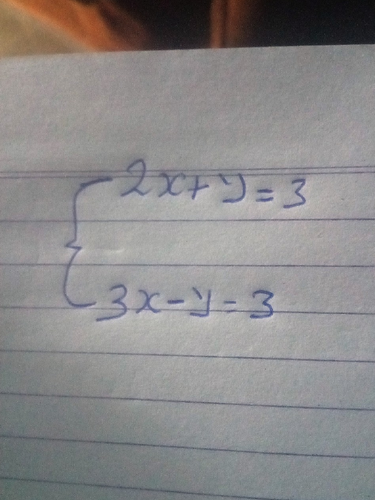 2x+y=3
3x-y=3